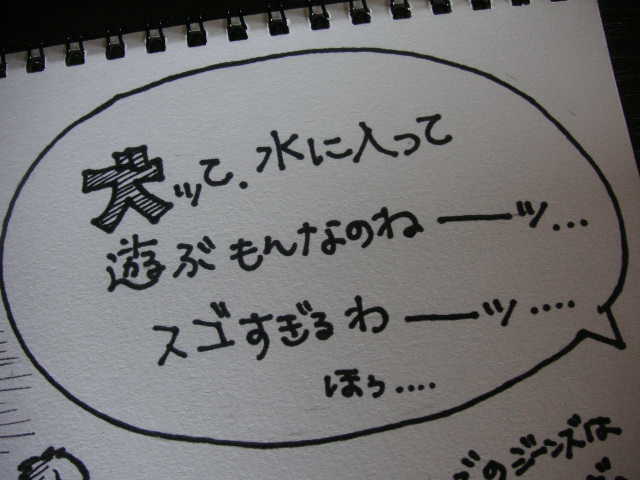 犬ッて、水に入って
遊ぶもんなのねーッ…
スゴすぎるわーッ‥‥
ほぅ‥‥
のジーンズは